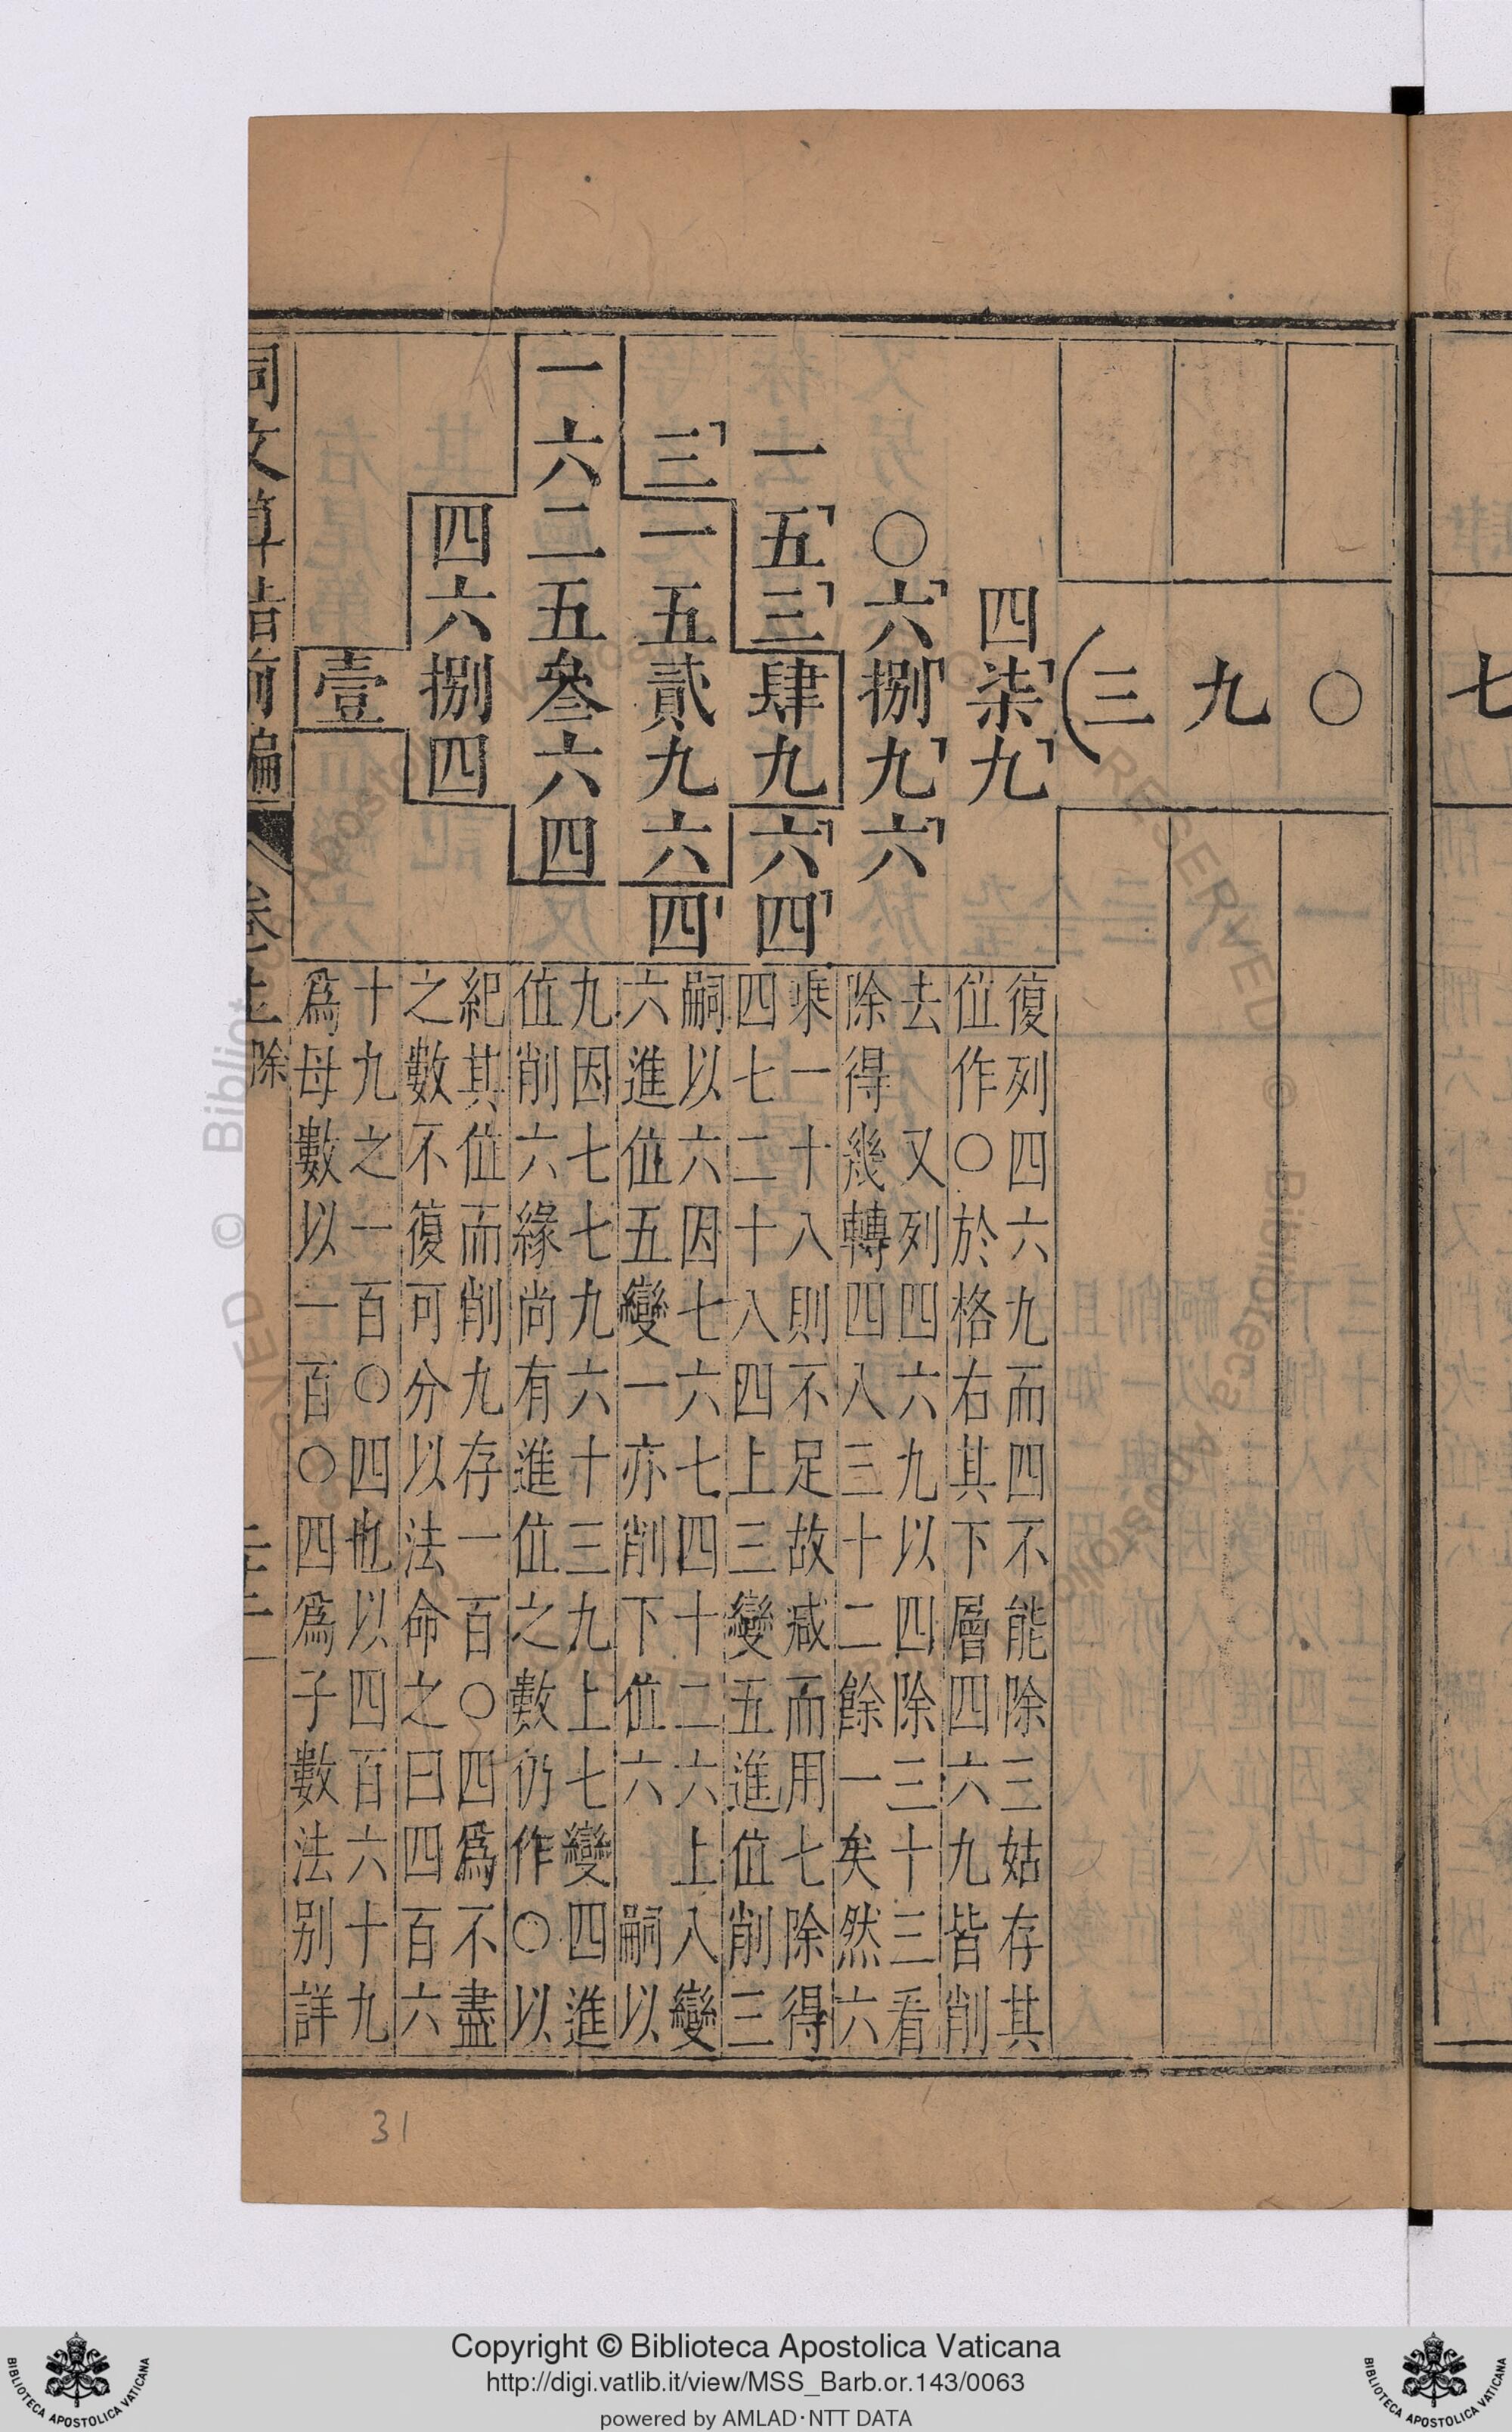 七
○
九
三
四柒九
○六捌九六
一五三肆九六四
三一五貳九六四
一六二五叁六四
四六捌四
壹
復列四六九而四不能除三姑存其
位作○於格右其下層四六九皆削
去 又列四六九以四除三十三看
除得幾轉四八三十二餘一矣然六
乘一十八則不足故减而用七除得
四七二十八四上三變五進位削三
嗣以六因七六七四十二六上八變
六進位五變一亦削下位六 嗣以
九因七七九六十三九上七變四進
位削六緣尚有進位之數仍作○以
紀其位而削九存一百○四爲不盡
之數不復可分以法命之曰四百六
十九之一百○四也以四百六十九
爲母數以一百○四爲子數法别詳
同文算指前編 卷上 除
31
Copyright © Biblioteca Apostolica Vaticana
http://digi.vatlib.it/view/MSS_Barb.or.143/0063
powered by AMLAD·NTT DATA
BIBLIOTECA APOSTOLICA VATICANA
BIBLIOTECA APOSTOLICA VATICANA